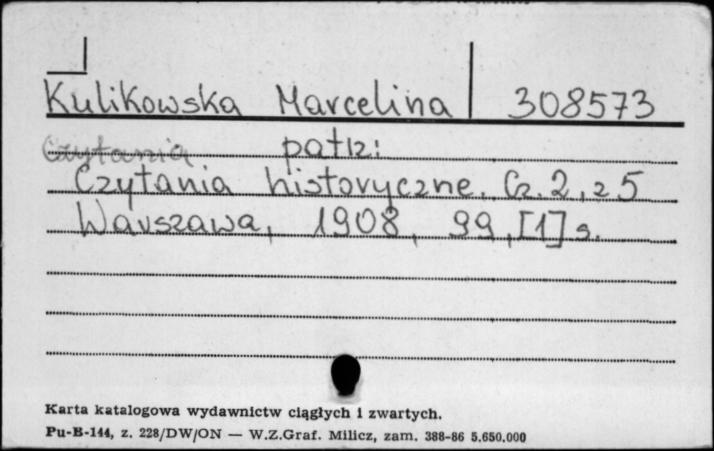 Kulikowska Marcelina 308573
Czytania patrz:
Czytania historyczne. Cz. 2, z 5
Warszawa, 1908, 99,[1] s.
Karta katalogowa wydawnictw ciągłych i zwartych.
Pu-B-144, z. 228/DW/ON — W.Z.Graf. Milicz, zam. 388-86 5.650.000